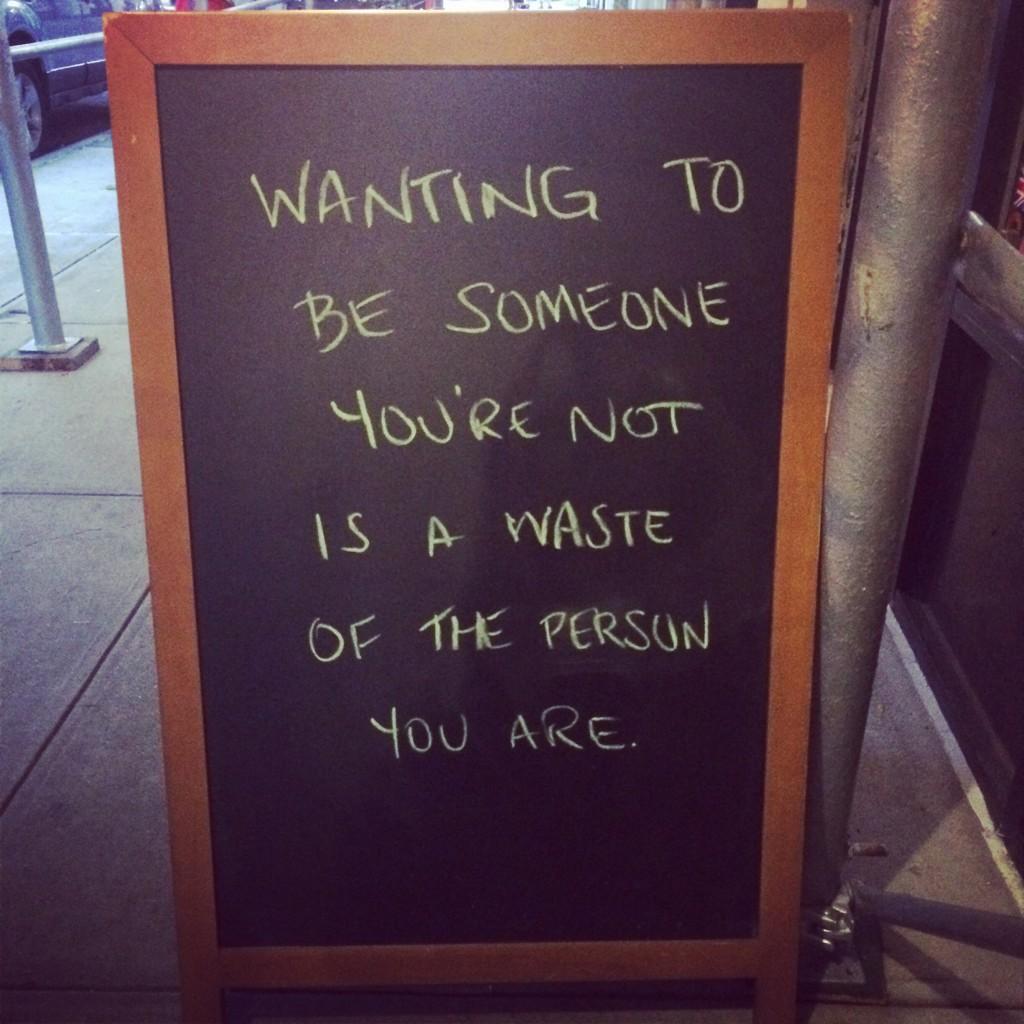 WANTING TO
BE SOMEONE
YOU'RE NOT
IS A WASTE
OF THE PERSON
YOU ARE.